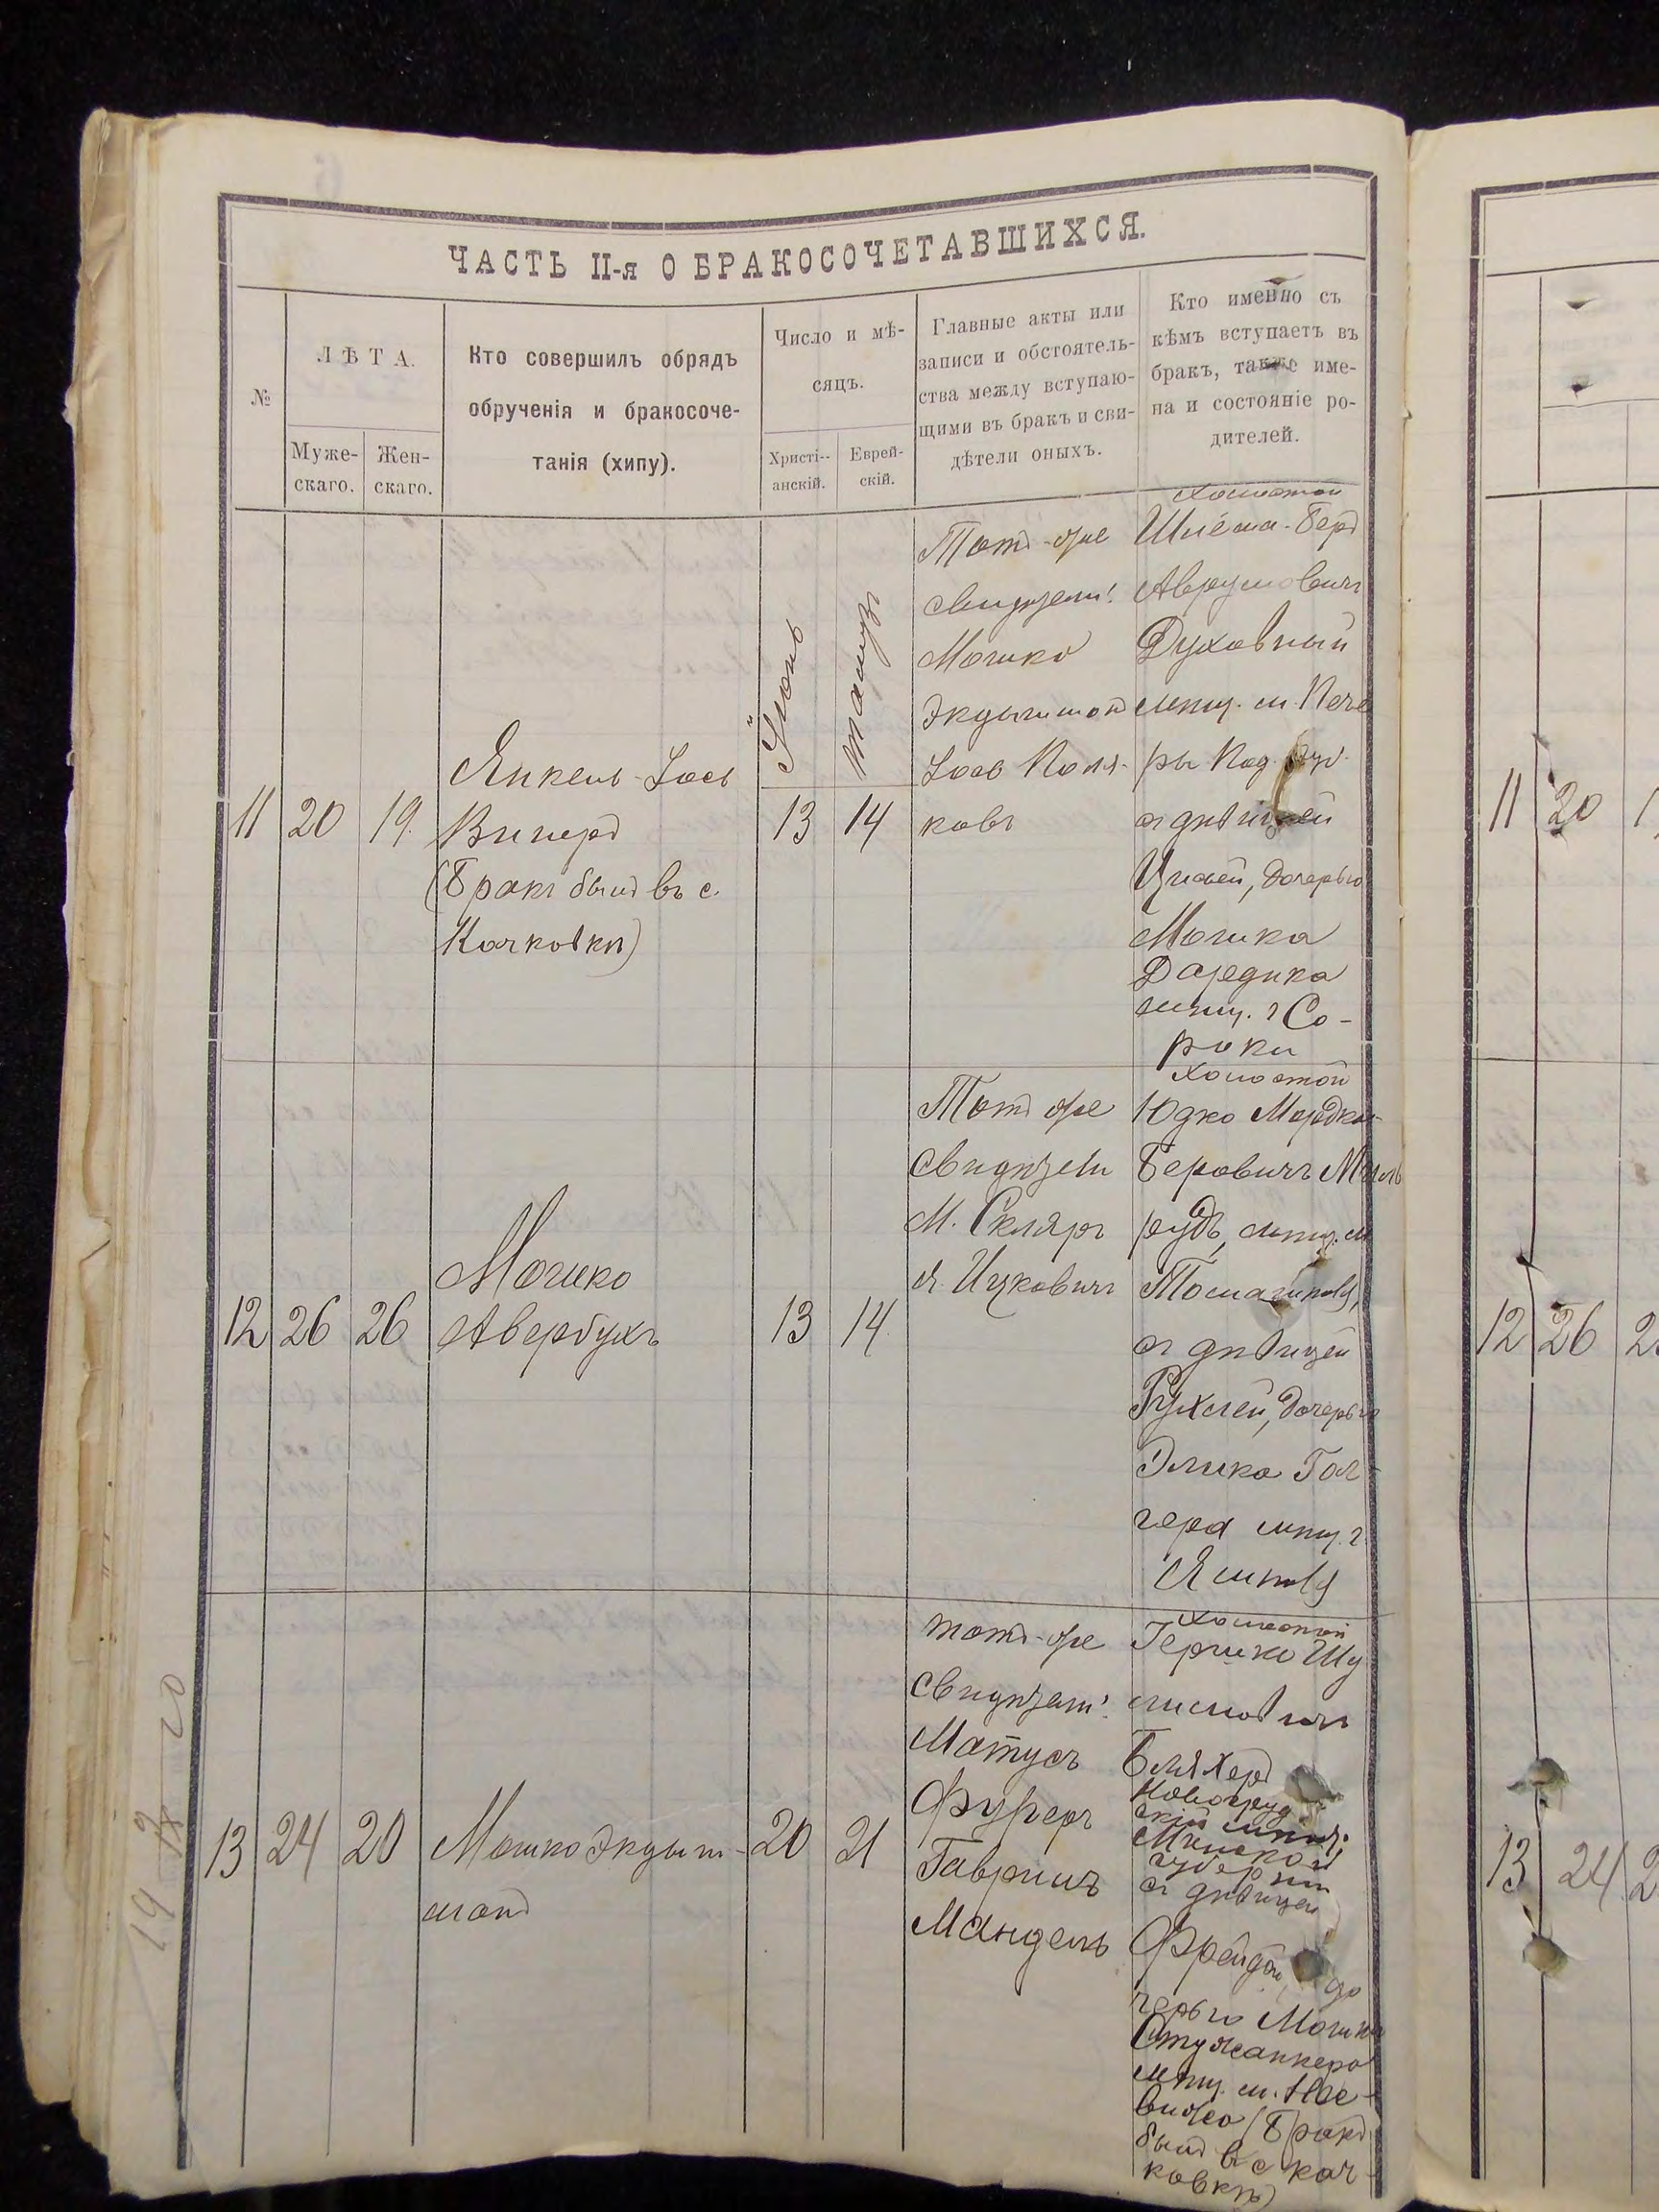 ЧАСТЬ II-я О БРАКОСОЧЕТАВШИХСЯ.
№
ЛѢТА.
Муже-
скаго.
Жен-
скаго.
Кто совершилъ обрядъ
обрученія и бракосоче-
танія (хипу).
Число и мѣ-
сяцъ.
Христі-
анскій.
Еврей-
скій.
Главные акты или
записи и обстоятель-
ства между вступаю-
щими въ бракъ и сви-
дѣтели оныхъ.
Кто именно съ
кѣмъ вступаетъ въ
бракъ, также име-
на и состояніе ро-
дителей.
11
20
19.
Янкель-Іось
Виперъ
(Бракъ былъ въ с.
Качковкѣ)
Іюнь
13
тамузъ
14
Тотъ-же
свидѣтели:
Мошко
Экдышманъ
Іось Поля-
ковъ
холостой
Шлёма-Беръ
Аврумовичъ
Духовный
мѣщ. м. Пече
ры Под. губ.
съ дѣвицей
Цизей, дочерью
Мошка
мѣщ. г Со-
роки
12
26
26
Мошко
Авербухъ
13
14
Тотъ же
свидѣтели
М. Скляръ
Я. Ицковичъ
холостой
Юдко Мордко-
Беровичъ
мѣщ. м
Томашполя,
съ дѣвицей
Рухлей, дочерью
Элика Гол-
гера мѣщ. г.
Ямполя
13
24
20
Мошко Экдыш-
манъ
20
21
тотъ-же
свидѣтели:
Матусъ
Фуреръ
Гаврилъ
Мандель
холостой
Гершко Шу
лимовичъ
Бляхеръ
Новогруд
скій мѣщ.
Минской
губерніи
съ дѣвицей
Фрейдой, до
черью Мошка
мѣщ. м. Мое-
(Бракъ
былъ въ с Кач-
ковкѣ)
11
20
12
26
13
24